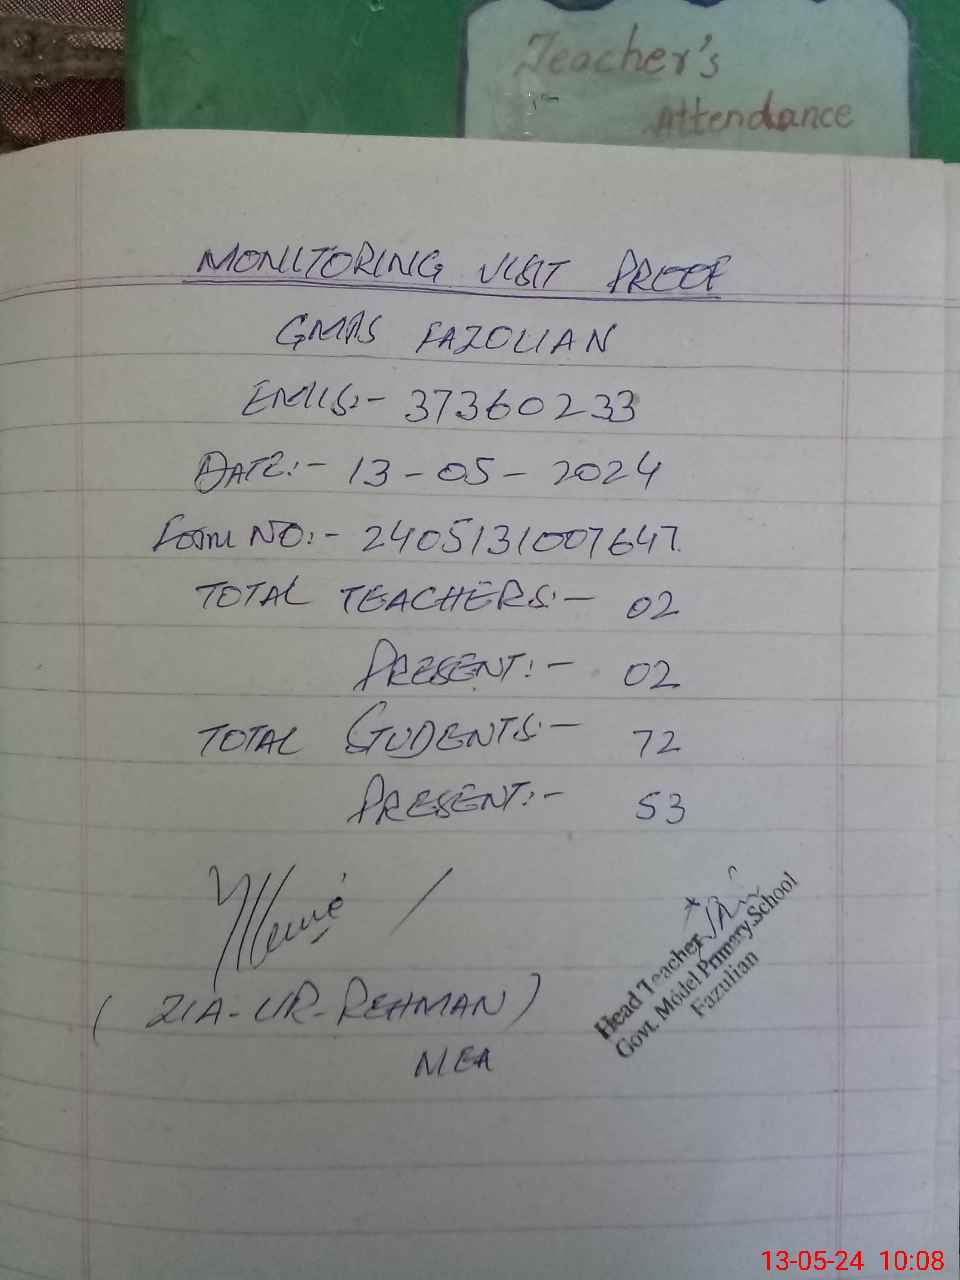 Teacher's
Attendance
MONITORING VISIT PROOF
GMPS FAZOLIAN
EMIS:- 37360233
DATE:- 13-05-2024
Form NO:- 2405131007647
TOTAL TEACHERS:- 02
PRESENT:- 02
TOTAL STUDENTS:- 72
PRESENT:- 53
(ZIA-UR-REHMAN)
MEA
Head Teacher
Govt. Model Primary School
Fazulian
13-05-24 10:08